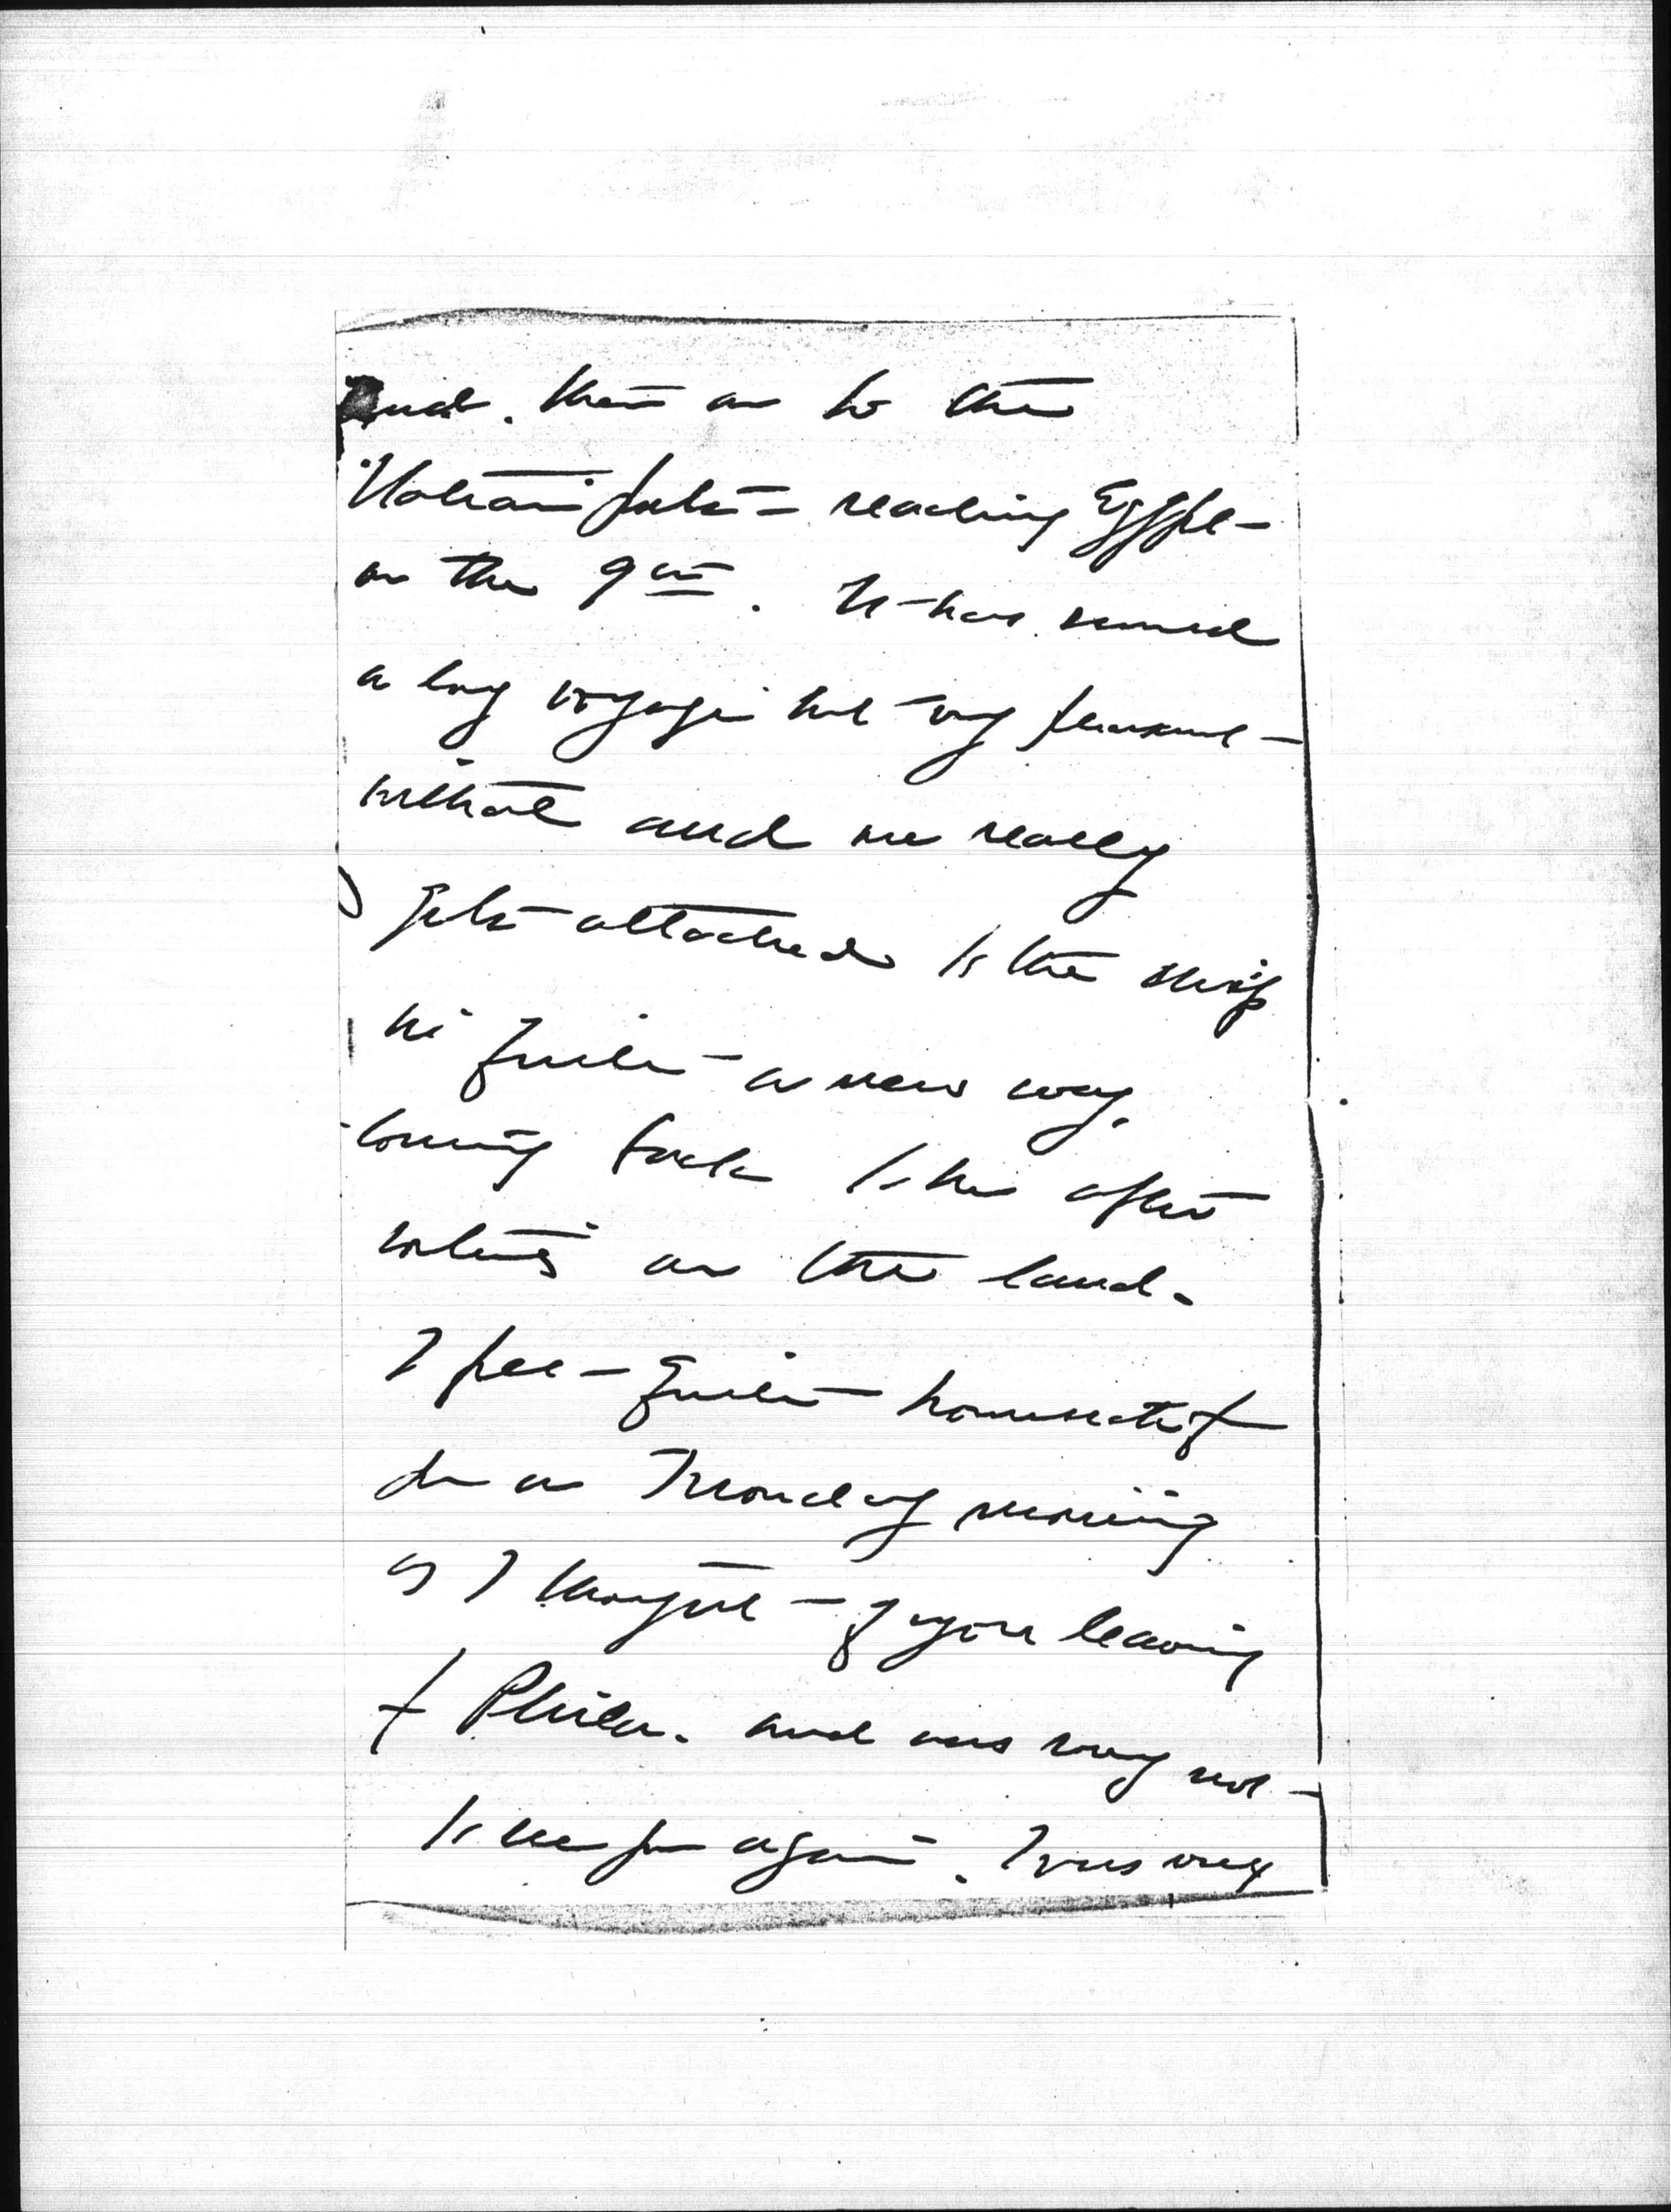 and. then on to the
Italian ports - reaching Egypt -
on the 9th. It has seemed
a long voyage but very pleasant -
withal and we really
gets attached to the ship
in quite a new way.
Coming back to her after
on the land.
I felt quite homesick
on Monday morning
as I thought of you leaving
for Phila. and was very not
to see you again. I was very